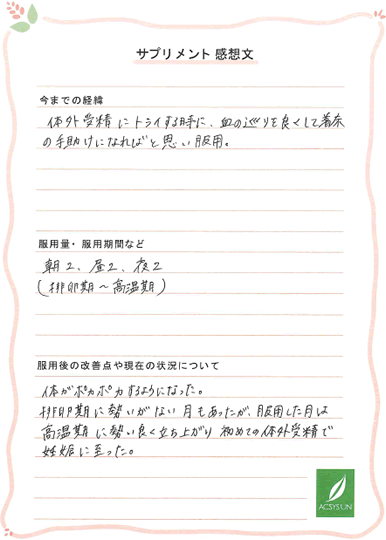 サプリメント 感想文
今までの経緯
体外受精にトライする時に、血の巡りを良くして着床
の手助けになればと思い服用。
服用量・服用期間など
朝2、昼2、夜2
(排卵期～高温期)
服用後の改善点や現在の状況について
体がポカポカするようになった。
排卵期に勢いがない月もあったが、服用した月は
高温期に勢い良く立ち上がり初めての体外受精で
妊娠に至った。
ACSYS.UN